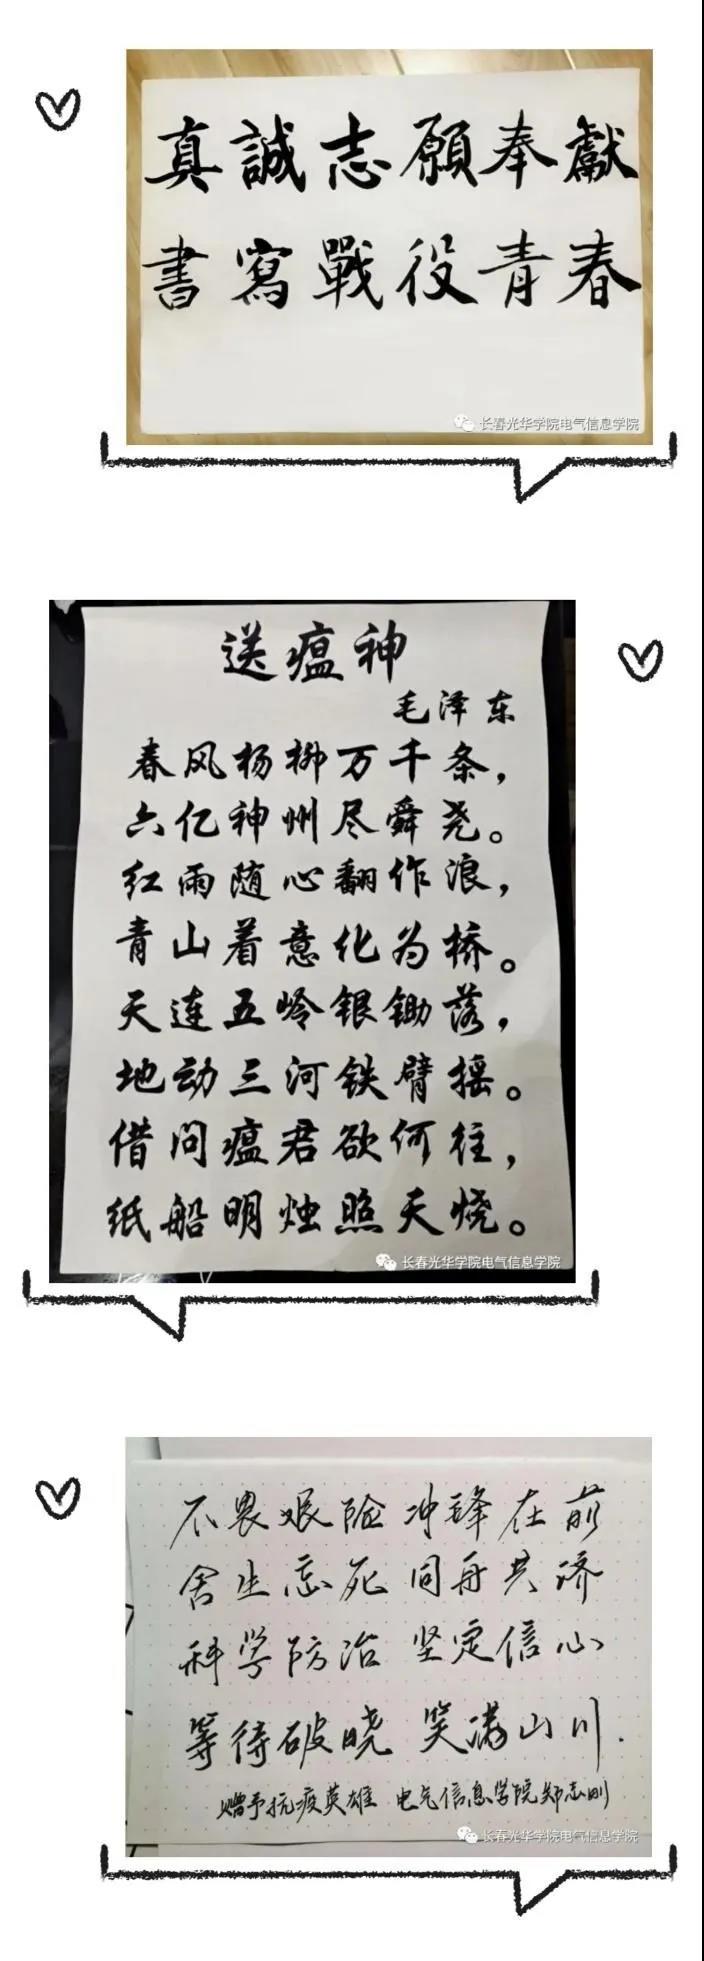 真誠志願奉獻
書寫戰役青春
长春光华学院电气信息学院
送瘟神
毛泽东
春风杨柳万千条，
六亿神州尽舜尧。
红雨随心翻作浪，
青山着意化为桥。
天连五岭银锄落，
地动三河铁臂摇。
借问瘟君欲何往，
纸船明烛照天烧。
长春光华学院电气信息学院
不畏艰险 冲锋在前
舍生忘死 同舟共济
科学防治 坚定信心
等待破晓 笑满山川.
赠予抗疫英雄 电气信息学院郑志刚
长春光华学院电气信息学院